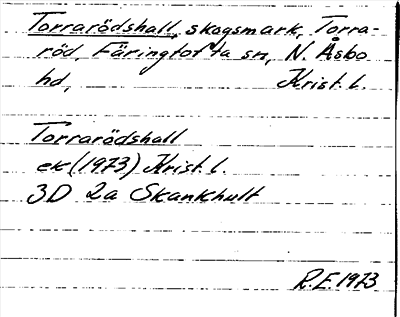 Torrarödshall, skogsmark, Torra-
röd, Färingtofta sn, N. Åsbo
hd, Krist. l.
Torrarödshall
ek (1973) Krist. l.
3D 2a Skånkhult
R.E. 1973